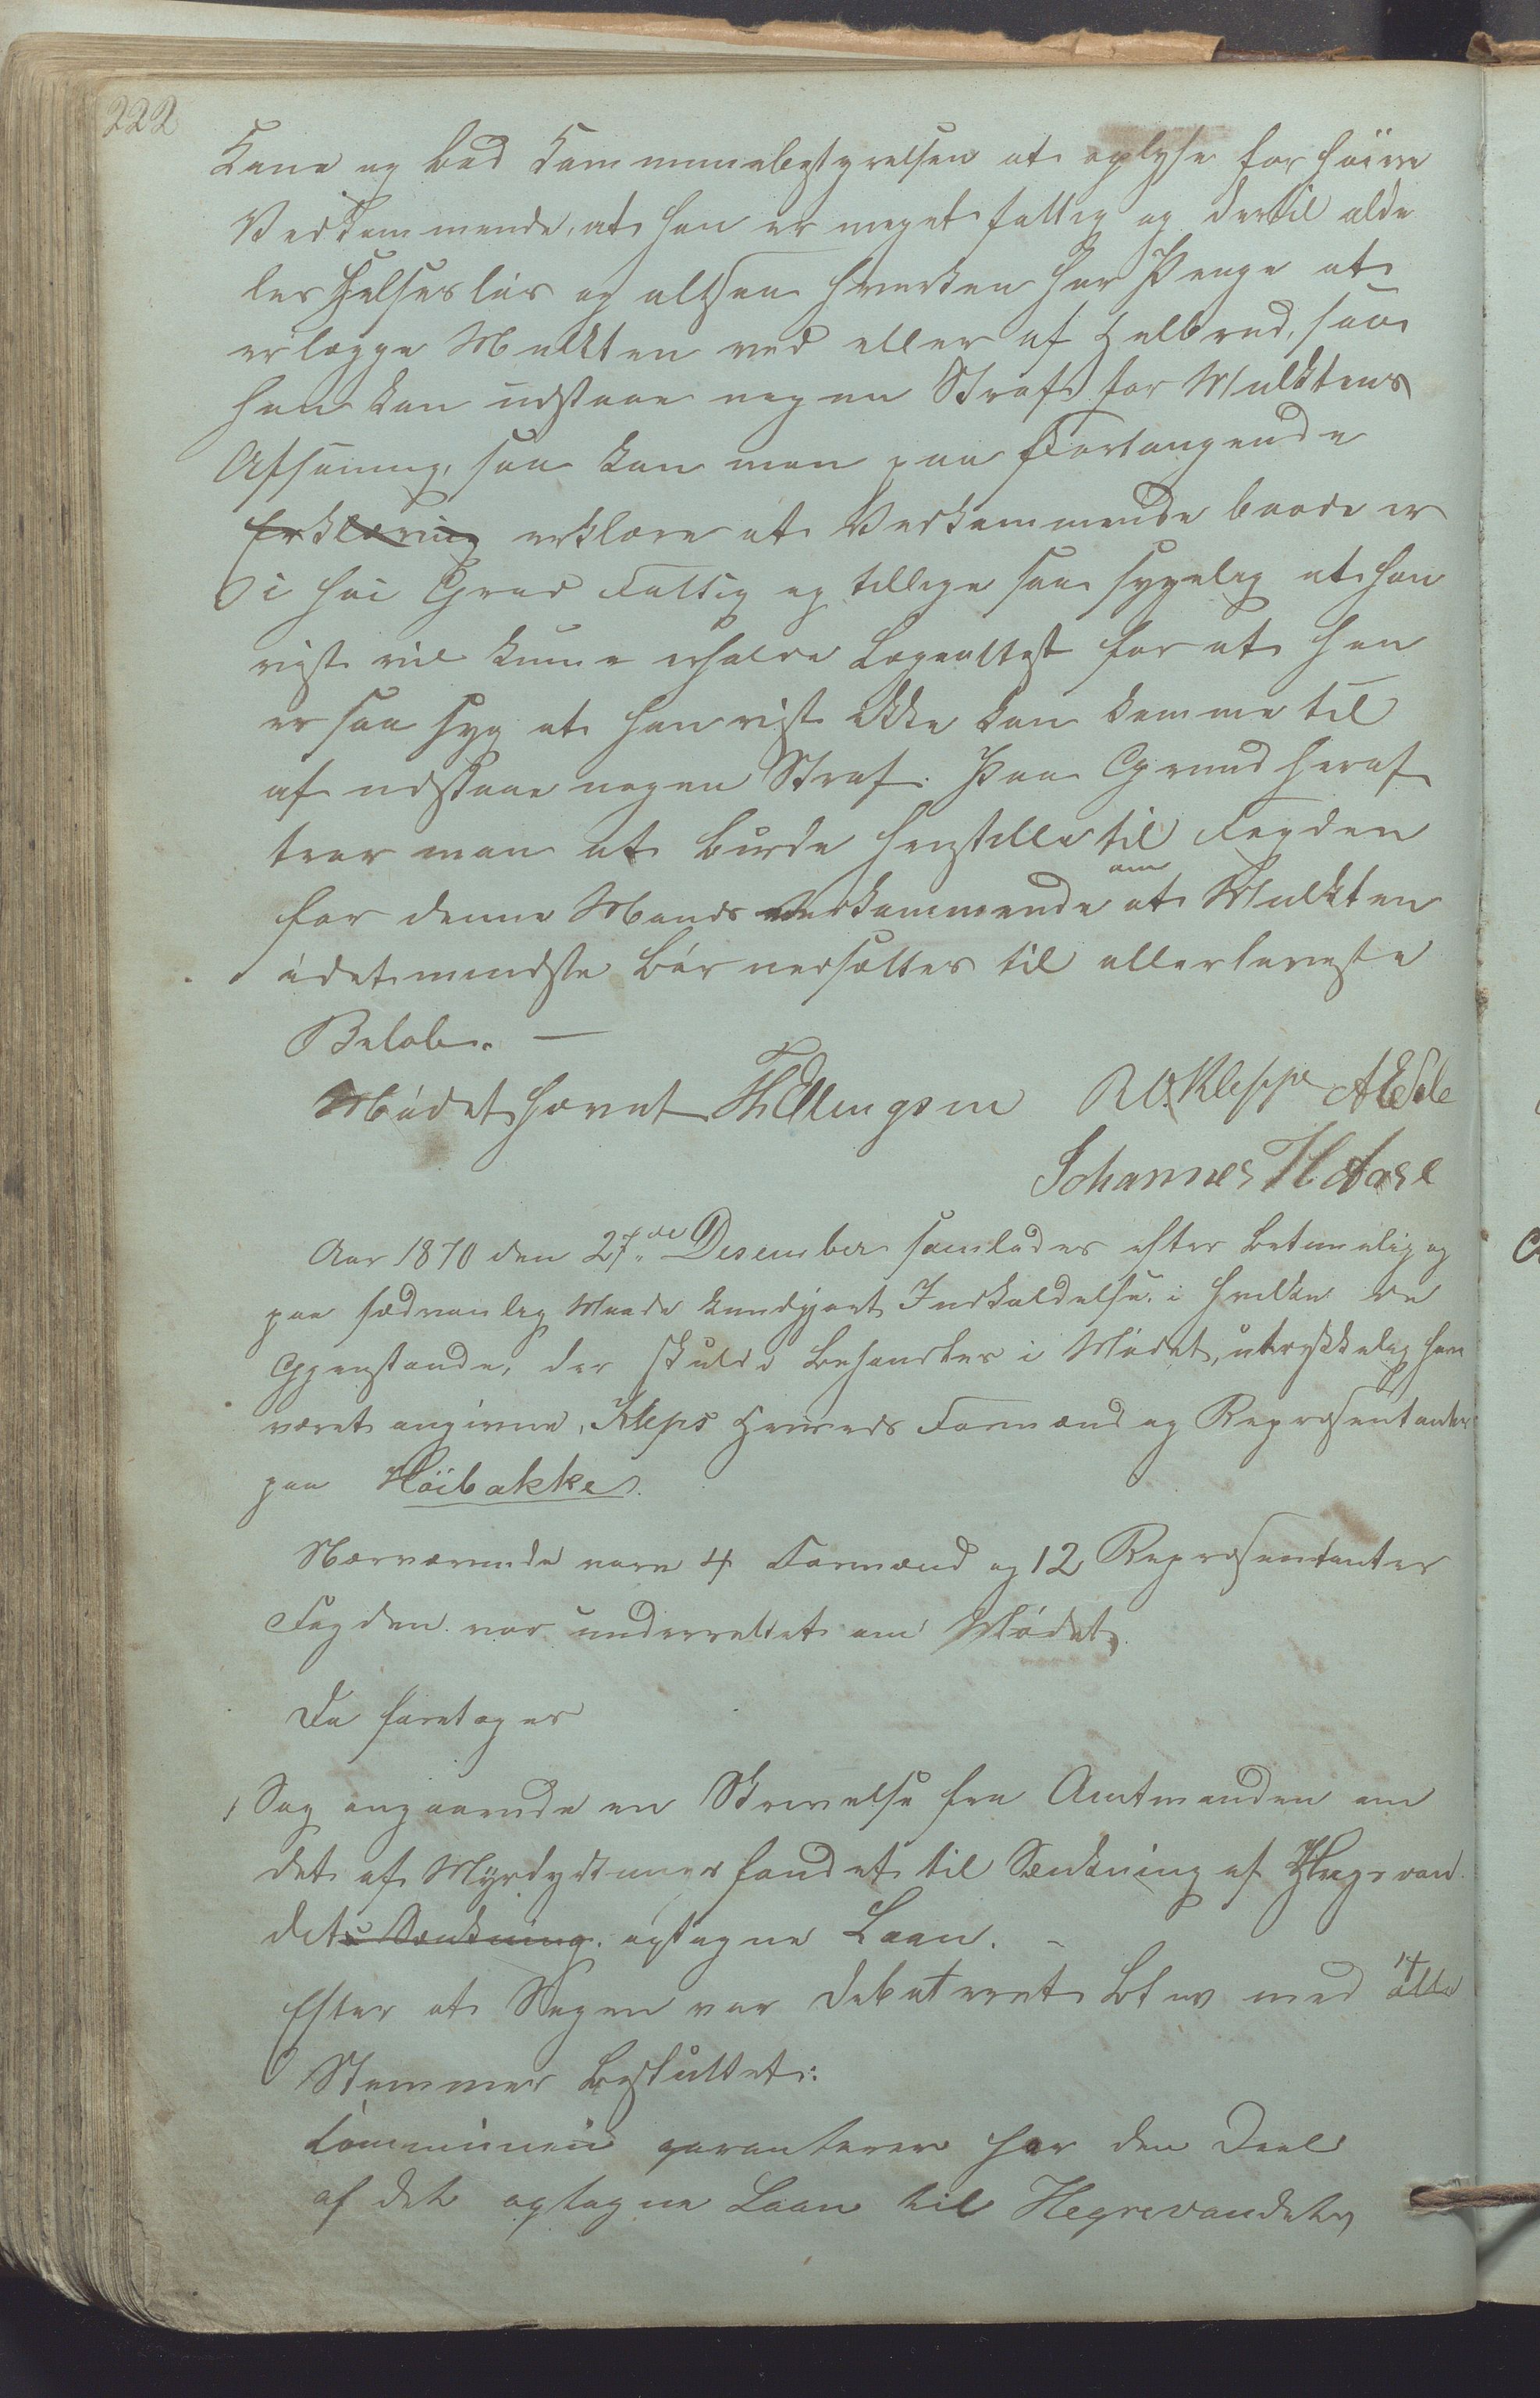 222
Kone og bad Kommunebestyrelsen at oplyse for høiere
Vedkommende, at han er meget fattig og dertil alde
les helsesløs og altsaa hverken har Penge at
erlægge Mulkten med eller af Helbred, saa
han kan udstaae nogen Straf for Mulktens
Afsoning, saa kan man paa Forlangende
Erklæring erklære at Vedkommende baade er
i høi Grad Fattig og tillige saa sygelig at han
vist vil kunne erholde Lægeattest for at han
er saa syg at han vist ikke kan komme til
af udstaae nogen Straf. Paa Grund heraf
troer man at burde henstille til Fogden
for denne Mands Vedkommende om at Mulkten
idetmindste bør nedsættes til allerlaveste
Beløb. —
Mødet hævet Th Ellingsen R O. Kleppe A E Sele
Johannes H Aase
Aar 1870 den 27de Desember samledes efter betimelig og
paa sædvanlig Maade kundgjort Indkaldelse, i hvilken de
Gjenstande, der skulde behandles i Mødet, udtrykkelig have
været angivne, Kleps Herreds Formænd og Repræsentanter
paa Höibakke.
Nærværende vare 4 Formænd og 12 Repræsentanter
Fogden var underrettet om Mødet
Da foretoges
1 Sag angaaende en Skrivelse fra Amtmanden om
det af Myrdyrkningsfondet til Sænkning af Hegrevan
dets Sænkning optagne Laan. -
Efter at Sagen var debateret blev med otte
Stemmer besluttet:
Communen garanterer for den Deel
af det optagne Laan til Hegrevandets